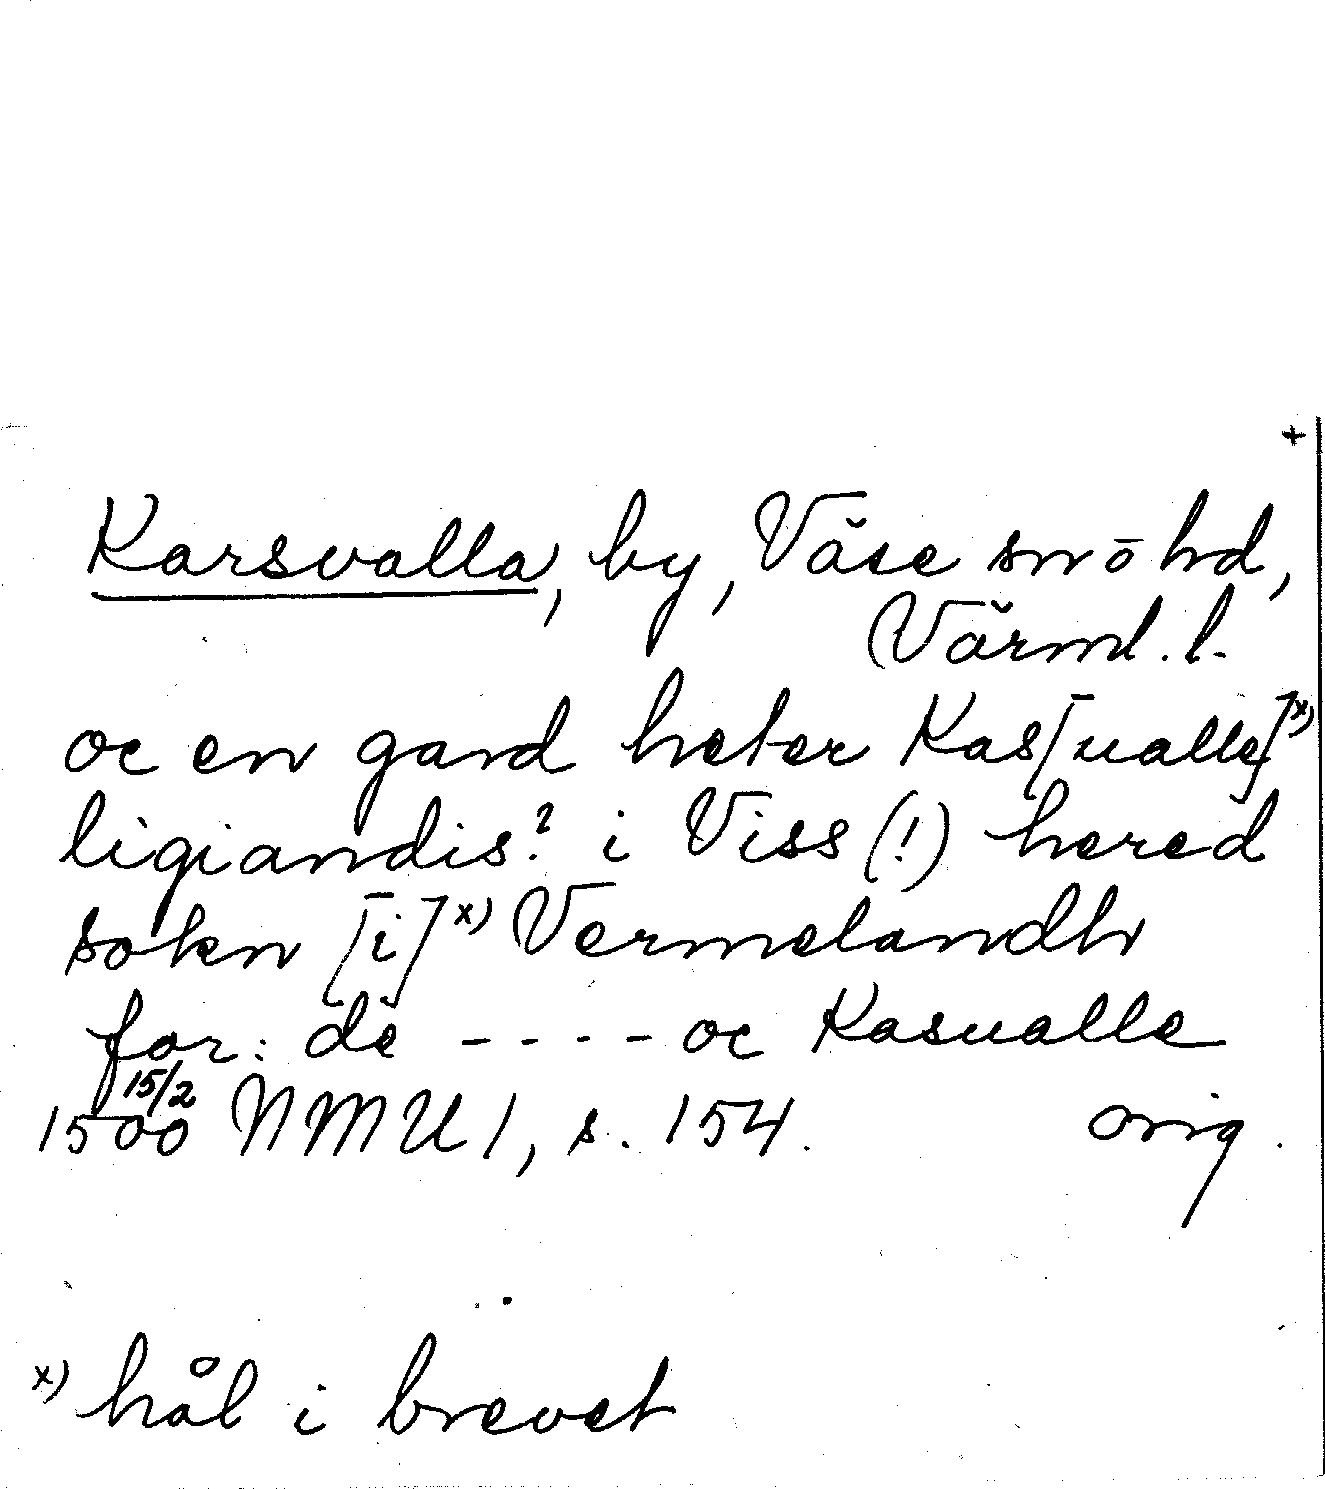 +
Karsvalla, by, Väse sn o hd,
Värml. l.
oc en gard heter Kas[ualle]x)
ligiandis? i Viss (!) hered
sokn [i]x) Vermelandh
for: de ---- oc Kasualle
15/2
1500 NMU 1, s. 154. orig.
x) hål i brevet